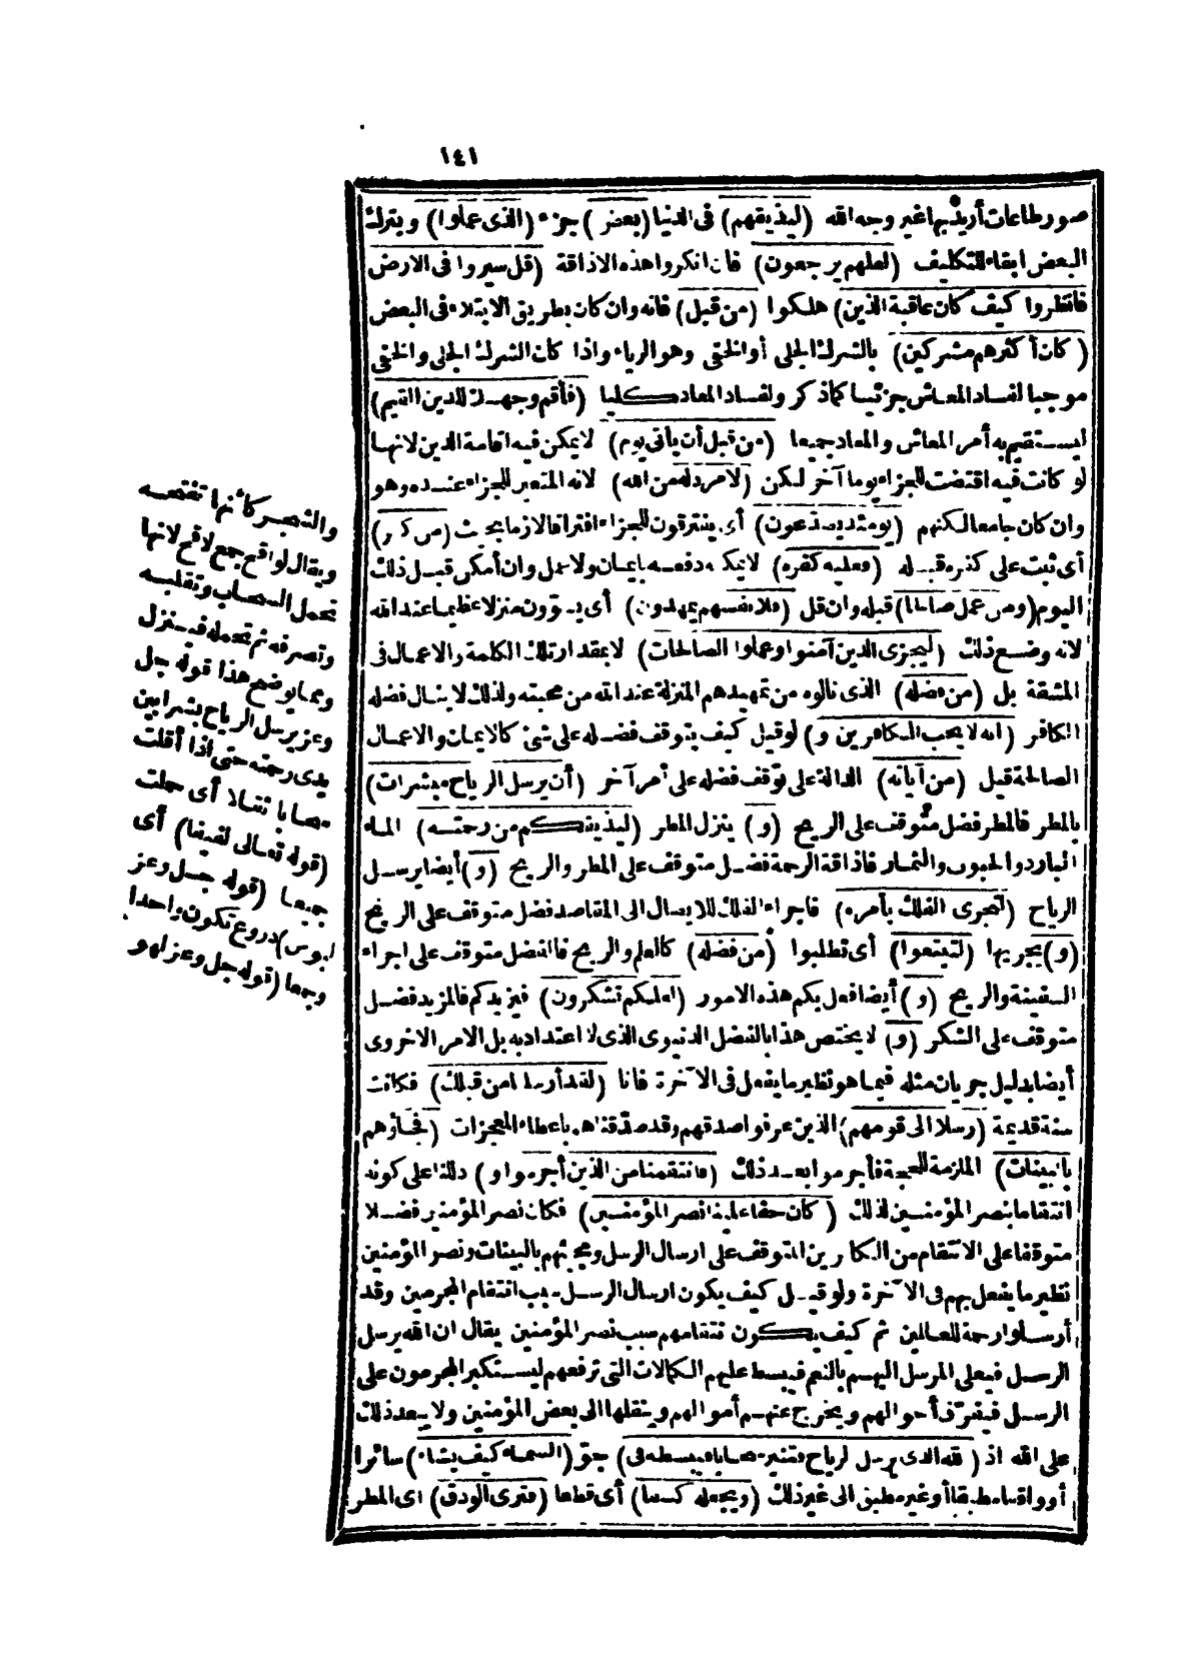 ١٤١
صور طاعات أريد بها غير وجه الله (ليذيقهم) فى الدنيا (بعض) جزء (الذى عملوا) ويترك
البعض ابقاء للتكليف (لعلهم يرجعون) فان انكروا هذه الاذاقة (قل سيروا فى الارض
فانظروا كيف كان عاقبة الذين) هلكوا (من قبل) فانه وان كان بطريق الابتلاء فى البعض
(كان أكثرهم مشركين) بالشرك الجلى أو الخفى وهو الرياء واذا كان الشرك الجلى والخفى
موجبا لفساد المعاش جزئيا كما ذكر ولفساد المعاد كليا (فأقم وجهك للدين القيم)
ليستقيم به أمر المعاش والمعاد جميعا (من قبل أن يأتى يوم) لا يمكن فيه اقامة الدين لانها
لو كانت فيه اقتضت للجزاء يوما آخر لكن (لا مرد له من الله) لانه المتعبر للجزاء عنده وهو
وان كان جامعا لكنهم (يومئذ يصدعون) أى يتفرقون للجزاء افتراقا لازما بحيث (من كفر)
أى ثبت على كفره قبله (فعليه كفره) لا يمكنه دفعه بايمان ولا عمل وان أمكن قبل ذلك
اليوم (ومن عمل صالحا) قبله وان قل (فلانفسهم يمهدون) أى يسوّون منزلا عظيما عند الله
لانه وضع ذلك (ليجزى الذين آمنوا وعملوا الصالحات) لا بقدر تلك الكلمة والاعمال فى
المشقة بل (من فضله) الذى نالوه من تمهيدهم المنزلة عند الله من محبته ولذلك لا ينال فضله
الكافر (انه لا يحب الكافرين و) لو قيل كيف يتوقف فضله على شئ كالايمان والاعمال
الصالحة قيل (من آياته) الدالة على توقف فضله على أمر آخر (أن يرسل الرياح مبشرات)
بالمطر فالمطر فضل متوقف على الريح (و) ينزل المطر (ليذيقكم من رحمته) الماء
البارد والحبوب والثمار فاذاقة الرحمة فضل متوقف على المطر والريح (و) أيضا يرسل
الرياح (لتجرى الفلك بأمره) فاجراء الفلك للايصال الى المقاصد فضل متوقف على الريح
(و) يجريها (لتبتغوا) أى تطلبوا (من فضله) كالعلم والربح فالفضل متوقف على اجراء
السفينة والريح (و) أيضا فعل بكم هذه الامور (لعلكم تشكرون) فيزيدكم فالمزيد فضل
متوقف على الشكر (و) لا يختص هذا بالفضل الدنيوى الذى لا اعتداد به بل الامر الاخروى
أيضا بدليل جريان مثله فيما هو نظير ما يفعل فى الآخرة فانا (لقد أرسلنا من قبلك) فكانت
سنة قديمة (رسلا الى قومهم) الذين عرفوا صدقهم وقد صدّقناهم باعطاء المعجزات (فجاؤهم
بالبينات) الملزمة للحجة فأجرموا بعد ذلك (فانتقمنا من الذين أجرموا و) دللنا على كونه
انتقاما بنصر المؤمنين لذلك (كان حقا علينا نصر المؤمنين) فكان نصر المؤمنين فضلا
متوقفا على الانتقام من الكافرين المتوقف على ارسال الرسل ومجيئهم بالبينات ونصر المؤمنين
نظير ما يفعل بهم فى الآخرة ولو قيل كيف يكون ارسال الرسل سبب انتقام المجرمين وقد
أرسلوا رحمة للعالمين ثم كيف يكون انتقامهم سبب نصر المؤمنين يقال ان الله يرسل
الرسل فيعلى المرسل اليهم بالنعم فيبسط عليهم الكمالات التى ترفعهم ليستكبر المجرمون على
الرسل فيفرّق أحوالهم ويخرج عنهم أموالهم وينقلها الى بعض المؤمنين ولا يبعد ذلك
على الله اذ (الله الذى يرسل الرياح فتثير سحابا فيبسطه فى) جوّ (السماء كيف يشاء) سائرا
أو واقفا مطبقا أو غير مطبق الى غير ذلك (ويجعله كسفا) أى قطعا (فترى الودق) أى المطر
والشجر كأنها تنقصه
ويقال لواقح جمع لاقح لانها
تحمل السحاب وتقلبه
وتصرفه ثم تحمله فينزل
ومما يوضح هذا قوله جل
وعز يرسل الرياح بشرا بين
يدى رحمته حتى اذا أقلت
سحابا ثقالا أى حملت
(قوله تعالى لفيفا) أى
جميعا (قوله جل وعز
لبوس) دروع تكون واحدا
وجمعا (قوله جل وعز لهو